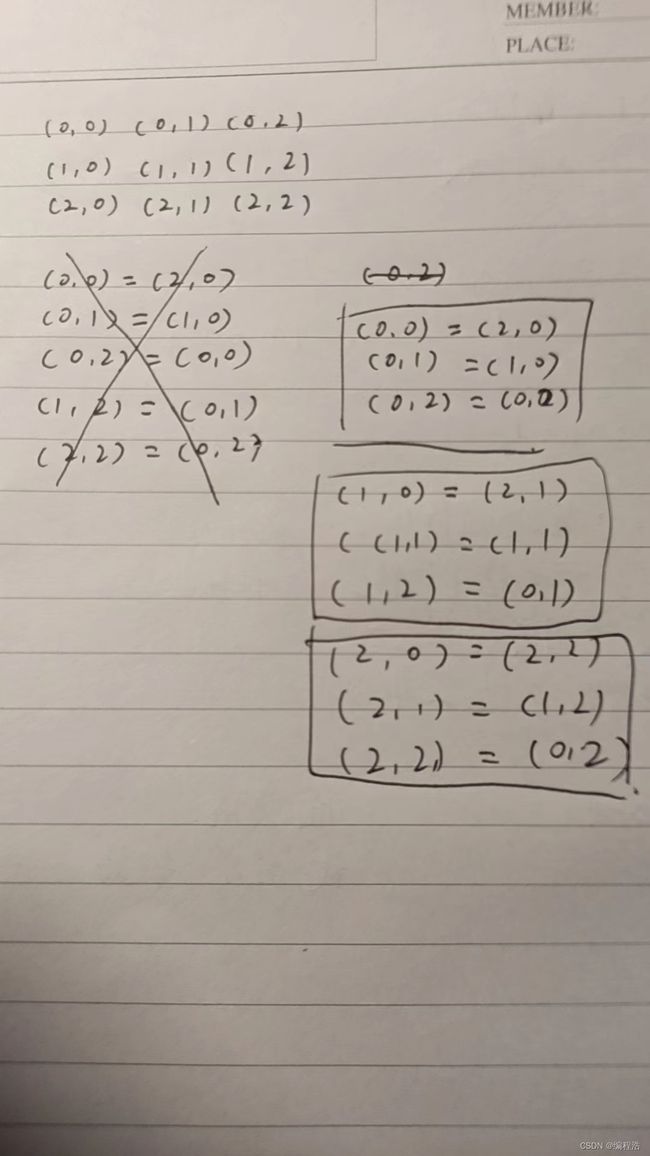 MEMBER:
PLACE:
(0,0) (0,1) (0,2)
(1,0) (1,1) (1,2)
(2,0) (2,1) (2,2)
(0,0) = (2,0)
(0,1) = (1,0)
(0,2) = (0,0)
(1,2) = (0,1)
(2,2) = (0,2)
(0,2)
(0,0) = (2,0)
(0,1) = (1,0)
(0,2) = (0,0)
(1,0) = (2,1)
( (1,1) = (1,1)
(1,2) = (0,1)
(2,0) = (2,2)
(2,1) = (1,2)
(2,2) = (0,2)
CSDN @编程浩